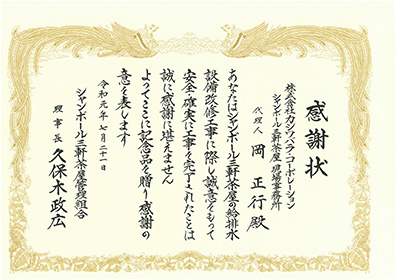 感謝状
株式会社カシワバラ・コーポレーション
シャンボール三軒茶屋 現場事務所
代理人 岡 正行 殿
あなたはシャンボール三軒茶屋の給排水
設備改修工事に際し誠意をもって
安全・確実に工事を完了されたことは
誠に感謝に堪えません
よってここに記念品を贈り感謝の
意を表します
令和元年七月二十一日
シャンボール三軒茶屋管理組合
理事長 久保木政広